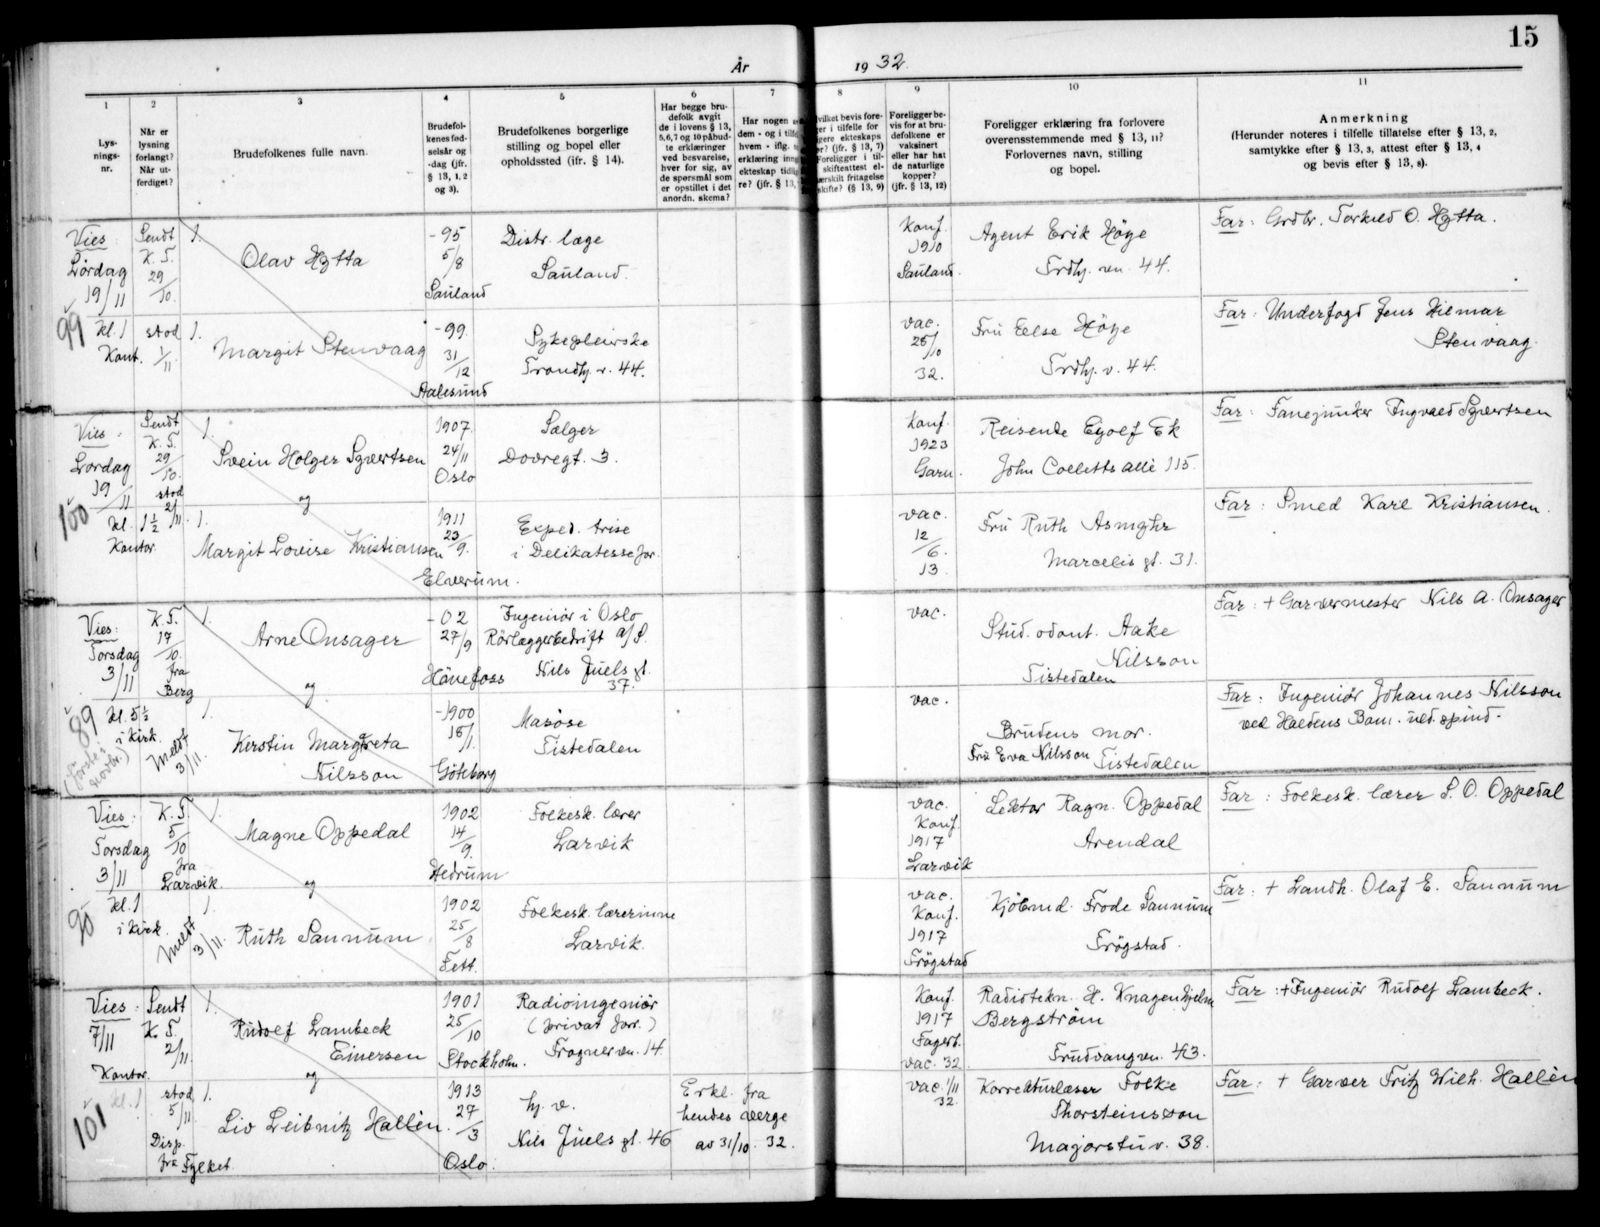 15
År
19 32.
1
2
3
4
5
6
7
8
9
10
11
Lys-
nings-
nr.
Når er
lysning
forlangt?
Når ut-
ferdiget?
Brudefolkenes fulle navn.
Brudefol-
kenes fød-
selsår og
-dag (jfr.
§ 13, 1, 2
og 3).
Brudefolkenes borgerlige
stilling og bopel eller
opholdssted (ifr. § 14).
Har begge bru-
defolk avgit
de i lovens § 13,
5, 6, 7 og 10 påbud-
te erklæringer
ved besvarelse,
hver for sig, av
de spørsmål som
er opstillet i det
anordn. skema?
Har nogen
dem - og i tilf
hvem - iflg.
erklæring inn
ekteskap tidli
re? (jfr. § 13,
vilket bevis fore-
ger i tilfelle for
gere ekteskaps
r? (jfr. § 13, 7)
Foreligger i til-
skifteattest el-
ærskilt fritagelse
skifte? (§ 13, 9)
Foreligger be-
vis for at bru-
defolkene er
vaksinert
eller har hat
de naturlige
kopper?
(jfr. § 13, 12)
Foreligger erklæring fra forlovere
overensstemmende med § 13, 11?
Forlovernes navn, stilling
og bopel.
Anmerkning
(Herunder noteres i tilfelle tillatelse efter § 13, 2,
samtykke efter § 13, 3, attest efter § 13, 4
og bevis efter § 13, 8).
99
Vies:
Lördag
19/11
kl. 1
Kont.
Sendt
K. T.
29/10.
stod
1/11
1.
Olav Hytta
- 95
5/8
Sauland
Distr. læge
Sauland.
Konf.
1910
Sauland.
Agent Erik Höye
Trdhj. vn. 44.
Far: Grdbr. Torkild O. Hytta.
1.
Margit Stenvaag
- 99.
31/12
Aalesund
Sykepleirske
Trondhj. v. 44.
vac.
26/10
32.
Fru Else Höye
Trdhj. v. 44.
Far: Underfogd Jens Hilmar
Stenvaag.
100
Vies:
Lordag
19/11
kl. 1 1/2
Kontor.
Sendt
K. T.
29/10.
stod
2/11.
1.
Svein Holger Syvertsen
og
1907.
24/11
Oslo
Selger
Dovregt. 3.
Konf.
1923
Garn.
Reisende Eyolf Ek
John Colletts allé 115.
Far: Fanejunker Ingvald Syvertsen
1.
Margit Lovise Kristiansen
1911
23/9.
Elverum.
Exped. trise
i Delikatessefor.
vac.
12/6.
13.
Fru Ruth Asmyhr
Marcelis gt. 31.
Far: Smed Karl Kristiansen.
89
Vies:
Torsdag
3/11
kl. 5 1/2
i kirk.
K. T.
17/10.
fra
Berg
Meldt
3/11.
1.
Arne Onsager
og
- 02
27/9
Hönefoss
Ingeniör i Oslo
Rörlæggerbedrift A/S.
Nils Juels gt.
37.
vac.
Stud. odont. Aake
Nilsson
Tistedalen
Far: + Garvermester Nils A. Onsager
1.
Kerstin Margreta
Nilsson
- 1900
16/1.
Göteborg
Masöse
Tistedalen
vac.
Brudens mor.
Fru Eva Nilsson Tistedalen
Far: Ingeniör Johannes Nilsson
ved Haldens Bom. uld. spind.
90
Vies:
Torsdag
3/11
kl. 1
i kirk.
K. T.
5/10
fra
Larvik.
Meldt
3/11.
1.
Magne Oppedal
og
1902
14/9.
Hedrum
Folkesk. lærer
Larvik
vac.
Konf.
1917
Larvik
Lektor Ragn. Oppedal
Arendal
Far: Folkesk. lærer S. O. Oppedal
1.
Ruth Sannum
1902
25/8
Fett.
Folkesk. lærerinne
Larvik.
vac.
Konf.
1917
Frögstad
Kjöbmd. Frode Sannum
Frögstad.
Far: + Landh. Olaf E. Sannum
101
Vies:
7/11
Kontor.
kl. 1
Sendt
K. T.
2/11.
stod
5/11.
Disp.
fra Fylket.
1.
Rudolf Lambeck
Einersen
og
1901
25/10
Stockholm.
Radioingeniör
(privat forr.)
Frognervn. 14
Konf.
1917
Fagerb.
vac. 32.
Radiotekn. H. Knagenhjelm
Bergström
Trudvangvn. 43.
Far: + Ingeniör Rudolf Lambeck.
1.
Liv Leibnitz Hallèn.
1913
27/3
Oslo.
hj. v.
Nils Juels gt. 46
Erkl. fra
hendes verge
av 31/10. 32.
vac. 1/11
32.
Korrekturlæser Folke
Thorsteinsson
Majorstuv. 38.
Far: + Garver Fritz Wilh. Hallèn